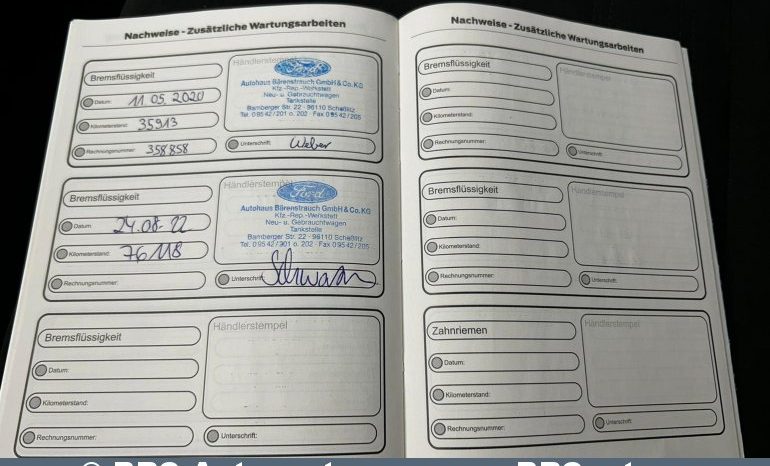 Nachweise - Zusätzliche Wartungsarbeiten
Bremsflüssigkeit
Datum: 11 05 2020
Kilometerstand: 35913
Rechnungsnummer: 358858
Händlerstempel
Ford
Autohaus Bärenstrauch GmbH & Co. KG
Kfz.-Rep.-Werkstatt
Neu- u. Gebrauchtwagen
Tankstelle
Bamberger Str. 22 · 96110 Scheßlitz
Tel. 0 95 42 / 201 o. 202 · Fax 0 95 42 / 205
Unterschrift: Weber
Bremsflüssigkeit
Datum: 24.08.22
Kilometerstand: 76118
Rechnungsnummer:
Händlerstempel
Ford
Autohaus Bärenstrauch GmbH & Co. KG
Kfz.-Rep.-Werkstatt
Neu- u. Gebrauchtwagen
Tankstelle
Bamberger Str. 22 · 96110 Scheßlitz
Tel. 0 95 42 / 201 o. 202 · Fax 0 95 42 / 205
Unterschrift:
Bremsflüssigkeit
Datum:
Kilometerstand:
Rechnungsnummer:
Händlerstempel
Unterschrift:
Nachweise - Zusätzliche Wartungsarbeiten
Bremsflüssigkeit
Datum:
Kilometerstand:
Rechnungsnummer:
Händlerstempel
Unterschrift:
Bremsflüssigkeit
Datum:
Kilometerstand:
Rechnungsnummer:
Händlerstempel
Unterschrift:
Zahnriemen
Datum:
Kilometerstand:
Rechnungsnummer:
Händlerstempel
Unterschrift: